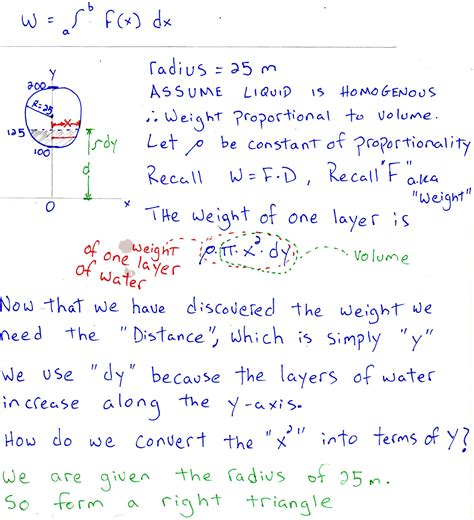 W = a∫b F(x) dx
radius = 25 m
ASSUME LIQUID IS HOMOGENOUS
∴ Weight proportional to volume.
Let ρ be constant of proportionality
Recall W = F·D, Recall "F" a.k.a "weight"
Y
200
R=25
x
125
100
dy
d
0
x
THE weight of one layer is
weight
of one layer
of water
ρ·π·x²·dy
volume
Now that we have discovered the weight we
need the "Distance", which is simply "y"
We use "dy" because the layers of water
increase along the y-axis.
How do we convert the "x²" into terms of Y?
We are given the radius of 25 m.
So form a right triangle